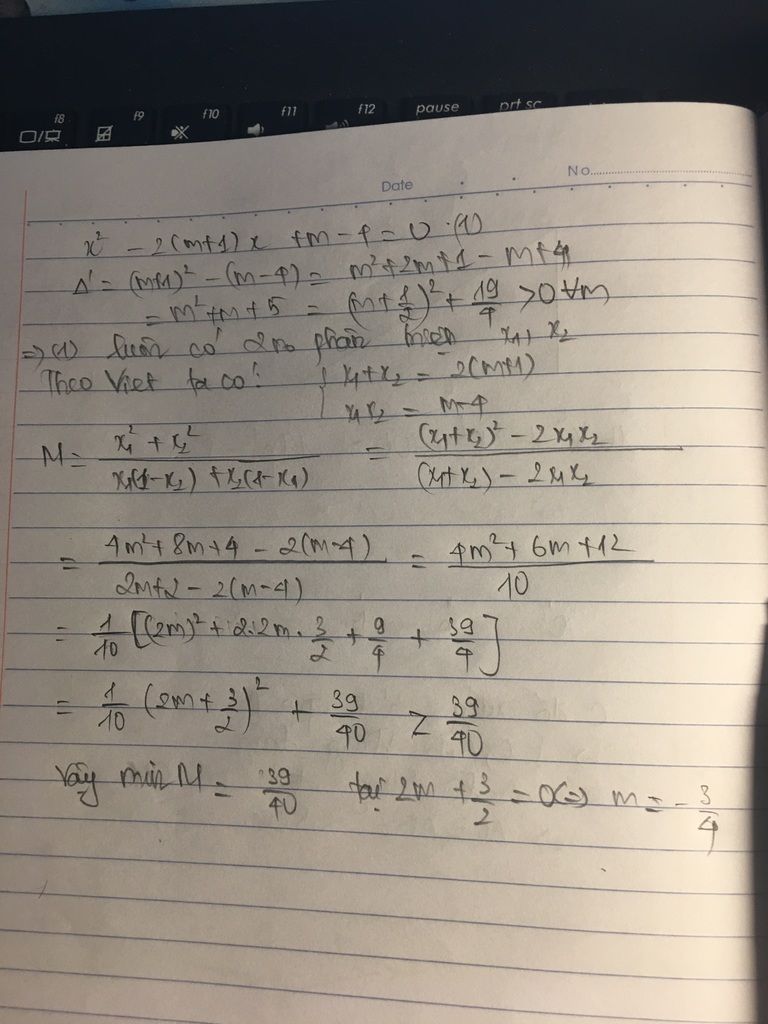 f8 f9 f10 f11 f12 pause prt sc
Date No
x² - 2(m+1)x + m - 4 = 0 (1)
Δ' = (m+1)² - (m-4) = m² + 2m + 1 - m + 4
= m² + m + 5 = (m + 1/2)² + 19/4 > 0 ∀m
=> (1) luôn có 2 no phân biệt x₁, x₂
Theo Viet ta có: { x₁ + x₂ = 2(m+1)
x₁x₂ = m-4
M = (x₁² + x₂²)/(x₁(1-x₂) + x₂(1-x₁)) = ((x₁+x₂)² - 2x₁x₂)/((x₁+x₂) - 2x₁x₂)
= (4m² + 8m + 4 - 2(m-4))/(2m+2 - 2(m-4)) = (4m² + 6m + 12)/10
= 1/10 [(2m)² + 2.2m.3/2 + 9/4 + 39/4]
= 1/10 (2m + 3/2)² + 39/40 ≥ 39/40
Vậy min M = 39/40 tại 2m + 3/2 = 0 (=) m = -3/4